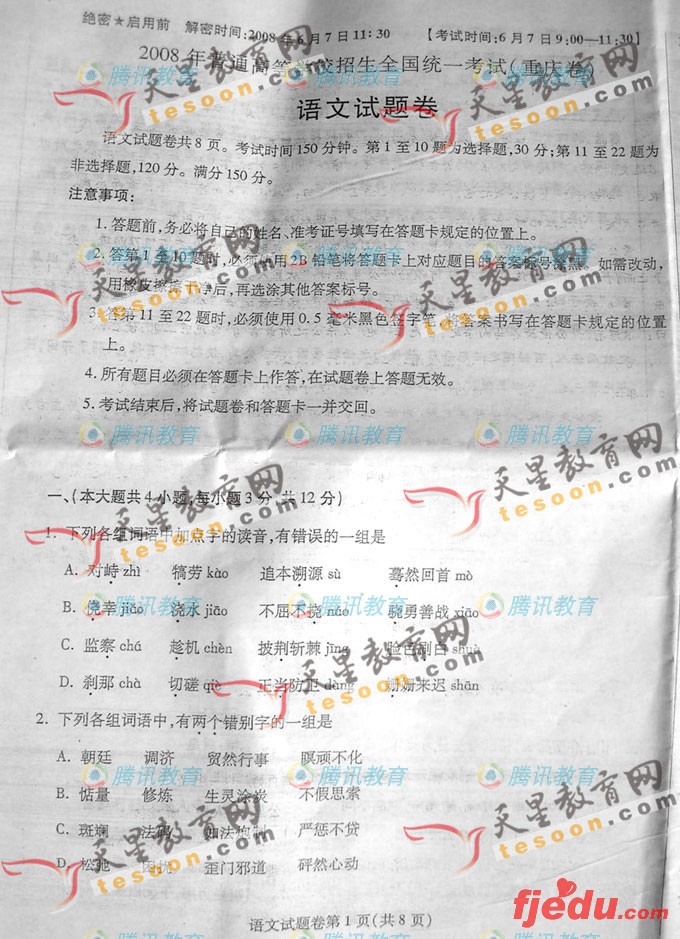 绝密★启用前 解密时间:2008年6月7日11:30 【考试时间:6月7日9:00—11:30】
2008年普通高等学校招生全国统一考试(重庆卷)
语文试题卷
语文试题卷共8页。考试时间150分钟。第1至10题为选择题,30分;第11至22题为
非选择题,120分。满分150分。
注意事项:
1.答题前,务必将自己的姓名、准考证号填写在答题卡规定的位置上。
2.答第1至10题时,必须使用2B铅笔将答题卡上对应题目的答案标号涂黑。如需改动,
用橡皮擦擦干净后,再选涂其他答案标号。
3.答第11至22题时,必须使用0.5毫米黑色签字笔,将答案书写在答题卡规定的位置
上。
4.所有题目必须在答题卡上作答,在试题卷上答题无效。
5.考试结束后,将试题卷和答题卡一并交回。
一、(本大题共4小题,每小题3分,共12分)
1. 下列各组词语中加点字的读音,有错误的一组是
A. 对峙zhì 犒劳kào 追本溯源sù 蓦然回首mò
B. 侥幸jiǎo 浇水jiāo 不屈不挠náo 骁勇善战xiāo
C. 监察chá 趁机chèn 披荆斩棘jīng 脸色刷白shuà
D. 刹那chà 切磋qiē 正当防卫dàng 姗姗来迟shān
2. 下列各组词语中,有两个错别字的一组是
A. 朝廷 调济 贸然行事 瞑顽不化
B. 惦量 修炼 生灵涂炭 不假思索
C. 斑斓 法码 如法炮制 严惩不贷
D. 松弛 歪门邪道 砰然心动
语文试题卷第1页(共8页)
腾讯教育
天星教育网
tesoon.com
fjedu.com